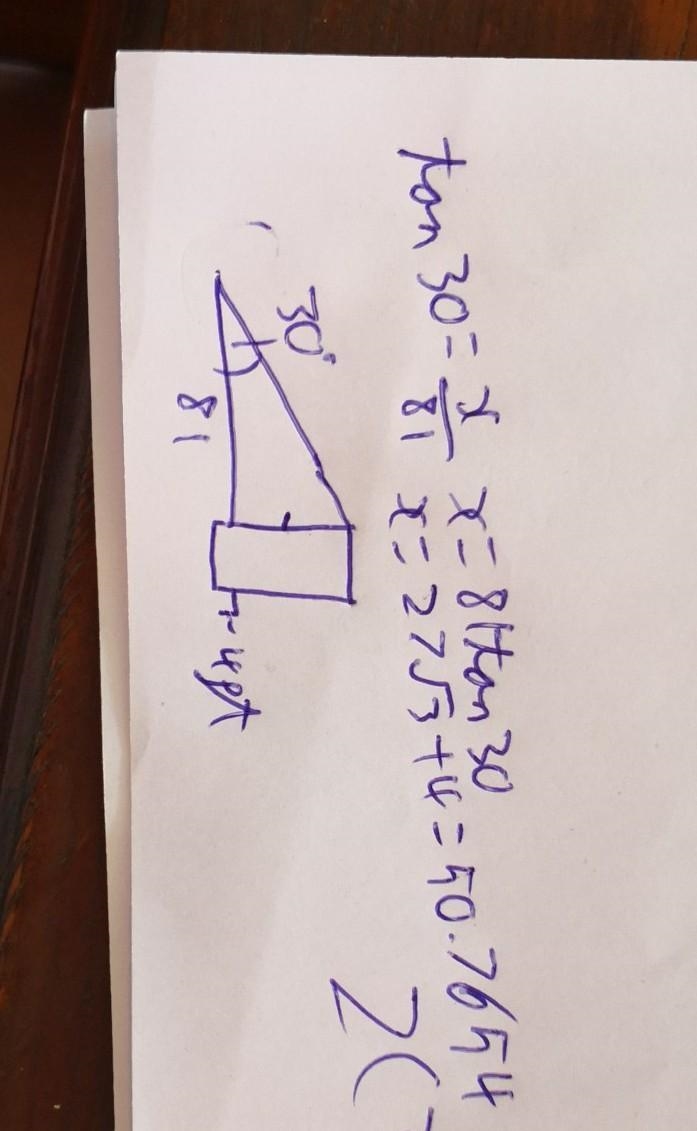 tan 30 = x/81 x = 81tan 30
x = 27√3 + 4 = 50.7654
30°
81
4ft
2(